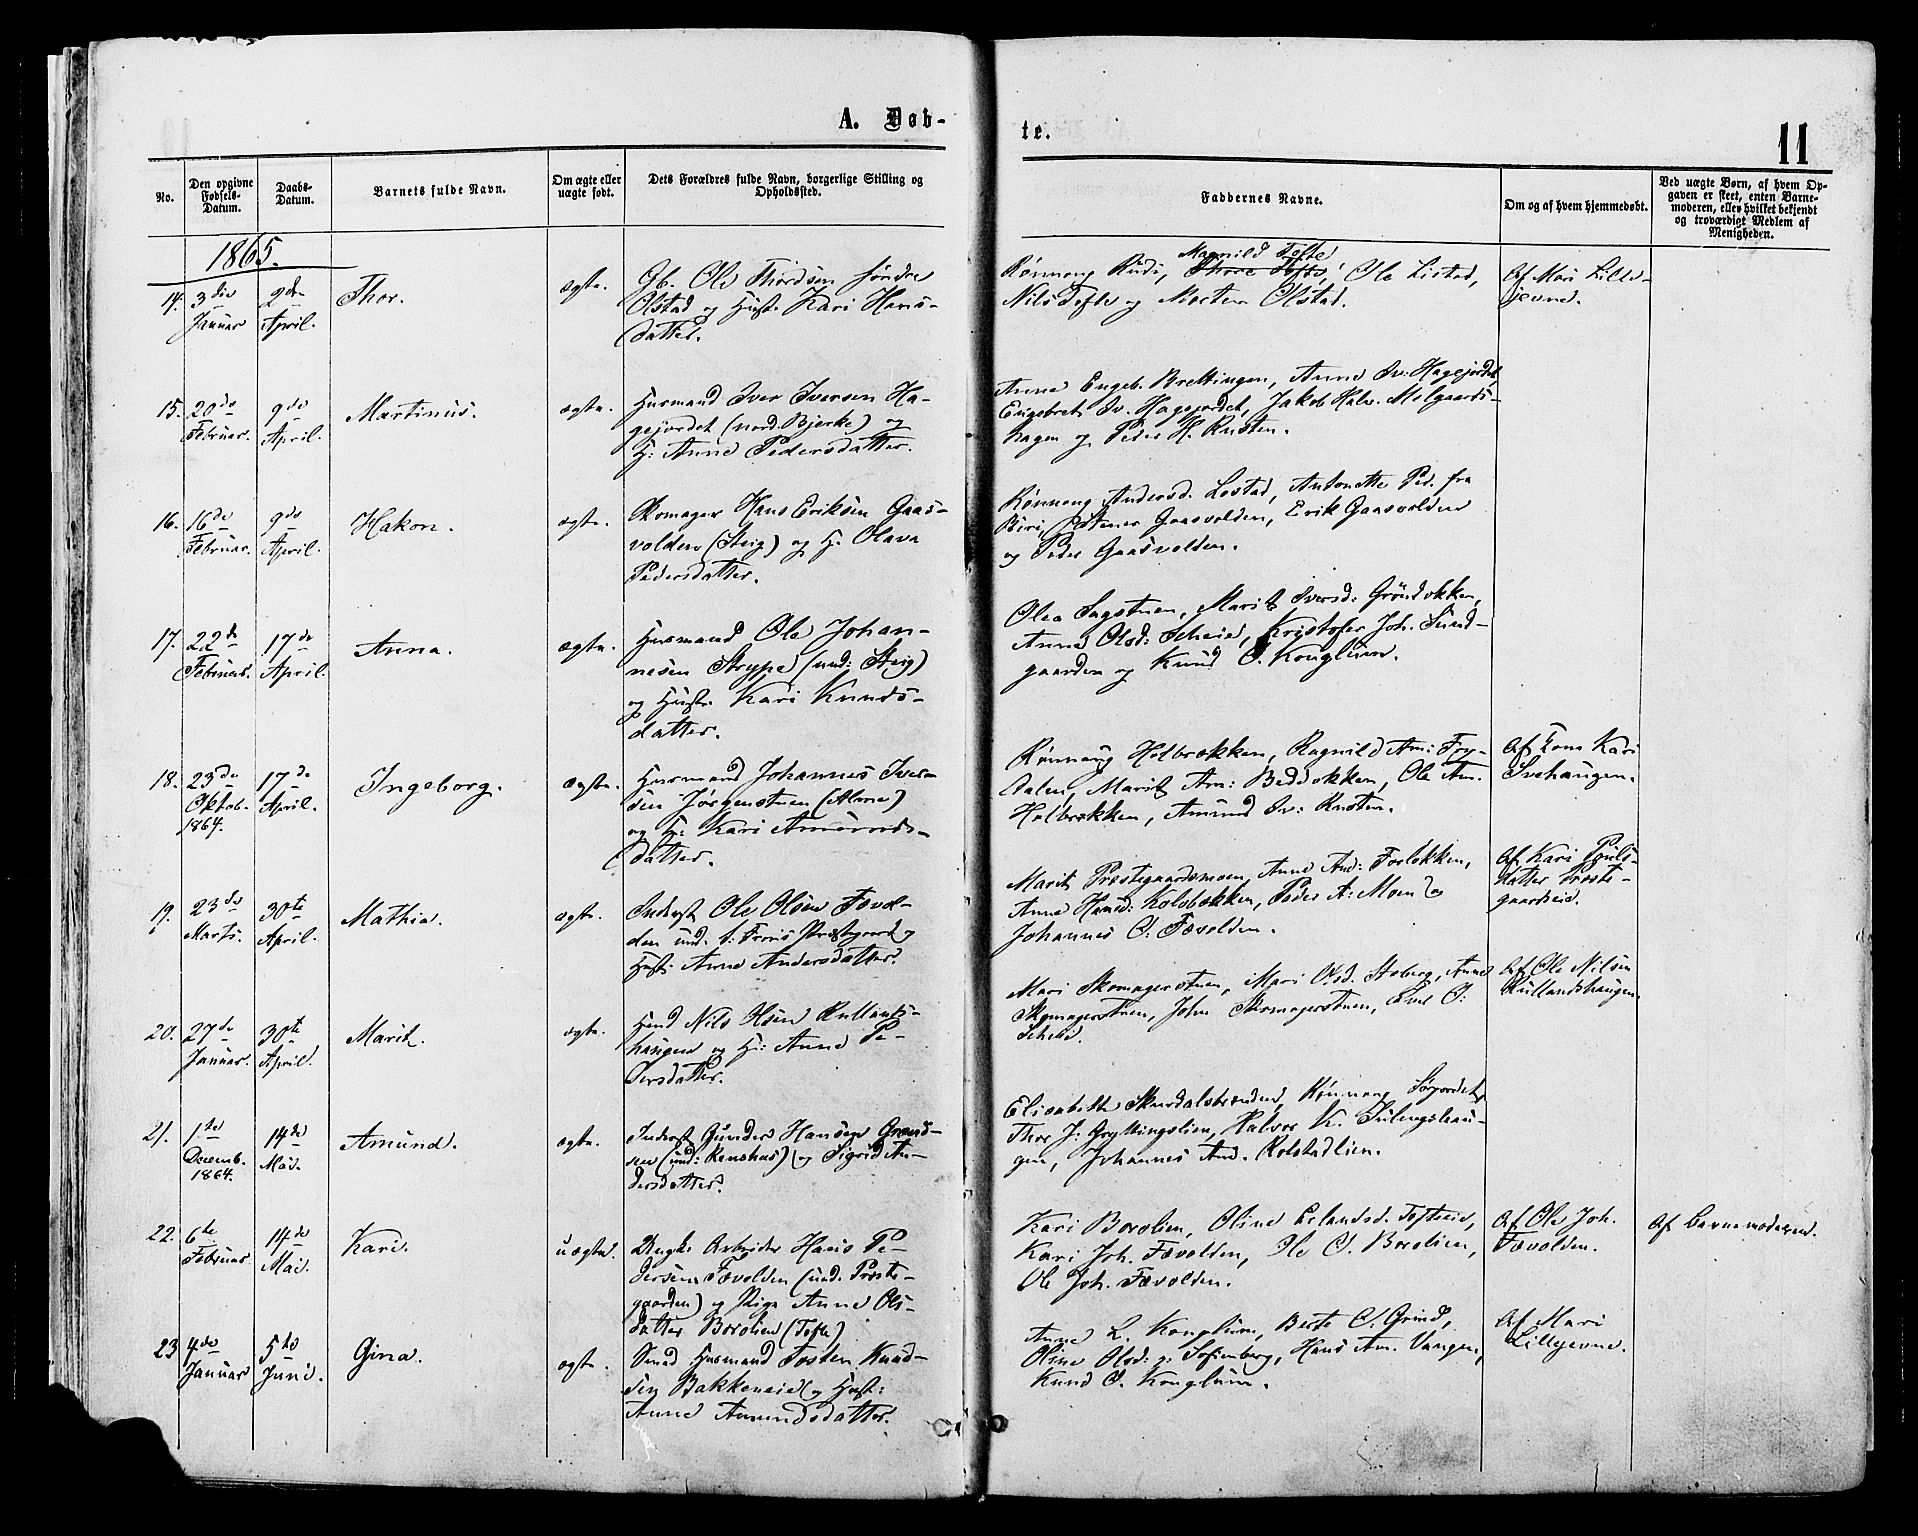 A. Døb-
te.
11
No.
Den opgivne Fødsels-Datum.
Daabs-Datum.
Barnets fulde Navn.
Om ægte eller uægte født.
Dets Forældres fulde Navn, borgerlige Stilling og Opholdssted.
Faddernes Navne.
Om og af hvem hjemmedøbt.
Ved uægte Børn, af hvem Op-
gaven er skeet, enten Barne-
moderen, eller hvilket bekjendt
og troværdigt Medlem af
Menigheden.
1865.
14. 3die Januar
2den April.
Thor.
ægte.
Gb. Ole Thordsen søndre
Olstad og Hust. Kari Hans-
datter.
Magnild Tofte
Rønnoug Rudi, Thore Tofte, Ole Listad,
Nils Tofte og Morten Olstad.
Af Mari Lille-
jevne.
15. 20de Februar.
9de April.
Martinus.
ægte.
Husmand Iver Iversen Ha-
gejordet (nord. Bjerke) og
H: Anne Pedersdatter.
Anne Engeb. Brettingen, Anne Iv: Hagejordet,
Engebret Iv. Hagejordet, Jakob Halv. Melgaards-
hagen og Peder H. Rusten.
16. 16de Februar.
9de April.
Hakon.
ægte.
Skomager Hans Eriksen Gaas-
volden (Steig) og H. Olava
Pedersdatter.
Rønnoug Andersd. Lostad, Antonette Ped. fra
Biri, Stener Gaasvolden, Erik Gaasvolden
og Peder Gaasvolden.
17. 22de Februar.
17de April.
Anna.
ægte.
Husmand Ole Johan-
nesen Strype (und: Steig)
og Hustr. Kari Knuds-
datter.
Olea Sagstuen, Marit Iversd: Grøndokken,
Anne Olsd: Scheie, Kristofer Joh. Sund-
gaarden og Knud O. Konglum.
18. 23de Oktob. 1864.
17de April.
Ingeborg.
ægte.
Husmand Johannes Iver-
sen Jørgenstuen (Alme)
og H: Kari Amunds-
datter.
Rønnoug Holbrekken, Ragnild Am: Fry-
dalen, Marit Am: Beddokken, Ole Am.
Holbrekken, Amund Iv: Rusten.
Af Kone Kari
Svehaugen.
19. 23de Marts.
30te April.
Mathia.
ægte.
Inderst Ole Olsen Fævol-
den und. s. Frons Præstegaard og
Hust: Anne Andersdatter.
Marit Præstegaardsmoen, Anne And: Forløkken,
Anne Hansd: Kolobækken, Peder A: Moen og
Johannes O. Fævolden.
Af Kari Pouls-
datter Præste-
gaardseie.
20. 27de Januar.
30te April.
Marit.
ægte.
Husd Nils Olsen Rullands-
haugen og H: Anne Pe-
dersdatter.
Mari Skomagerstuen, Mari Olsd. Stoberg, Anne
Skomagerstuen, John Skomagerstuen, Iver O.
Scheie.
Af Ole Nilsen
Rullandshaugen.
21. 1ste Decemb. 1864.
14de Mai.
Amund.
ægte.
Inderst Gunder Hansen Grøns-
(und: Kenshus) og Sigrid An-
dersdatter.
Elisabeth Skurdalsbrenden, Rønnoug Sørjordet,
Thor J: Gryttingslien, Halvor K. Sulingshau-
gen, Johannes And. Kolstadlien.
22. 6te Februar
14de Mai.
Kari.
uægte.
Ungk: Arbeider Hans Pe-
dersen Fævolden (und. Præste-
gaarden) og Pige Anne Ols-
datter Borolien (Tofte)
Kari Borolien, Oline Erlandsd. Tofteeie,
Kari Joh. Fævolden, Ole O. Borolien,
Ole Joh. Fævolden.
Af Ole Joh.
Fævolden.
Af Barnemoderen.
23 4de Januar
5te Juni.
Gina.
ægte.
Smed Husmand Tosten Knud-
sen Bakkeneie og Hust:
Anne Amundsdatter.
Anne L. Konglum, Berte O. Grind,
Oline Olsd: p. Sofienberg, Hans Am. Vangen,
Knud O. Konglum.
Af Mari
Lillejevne.